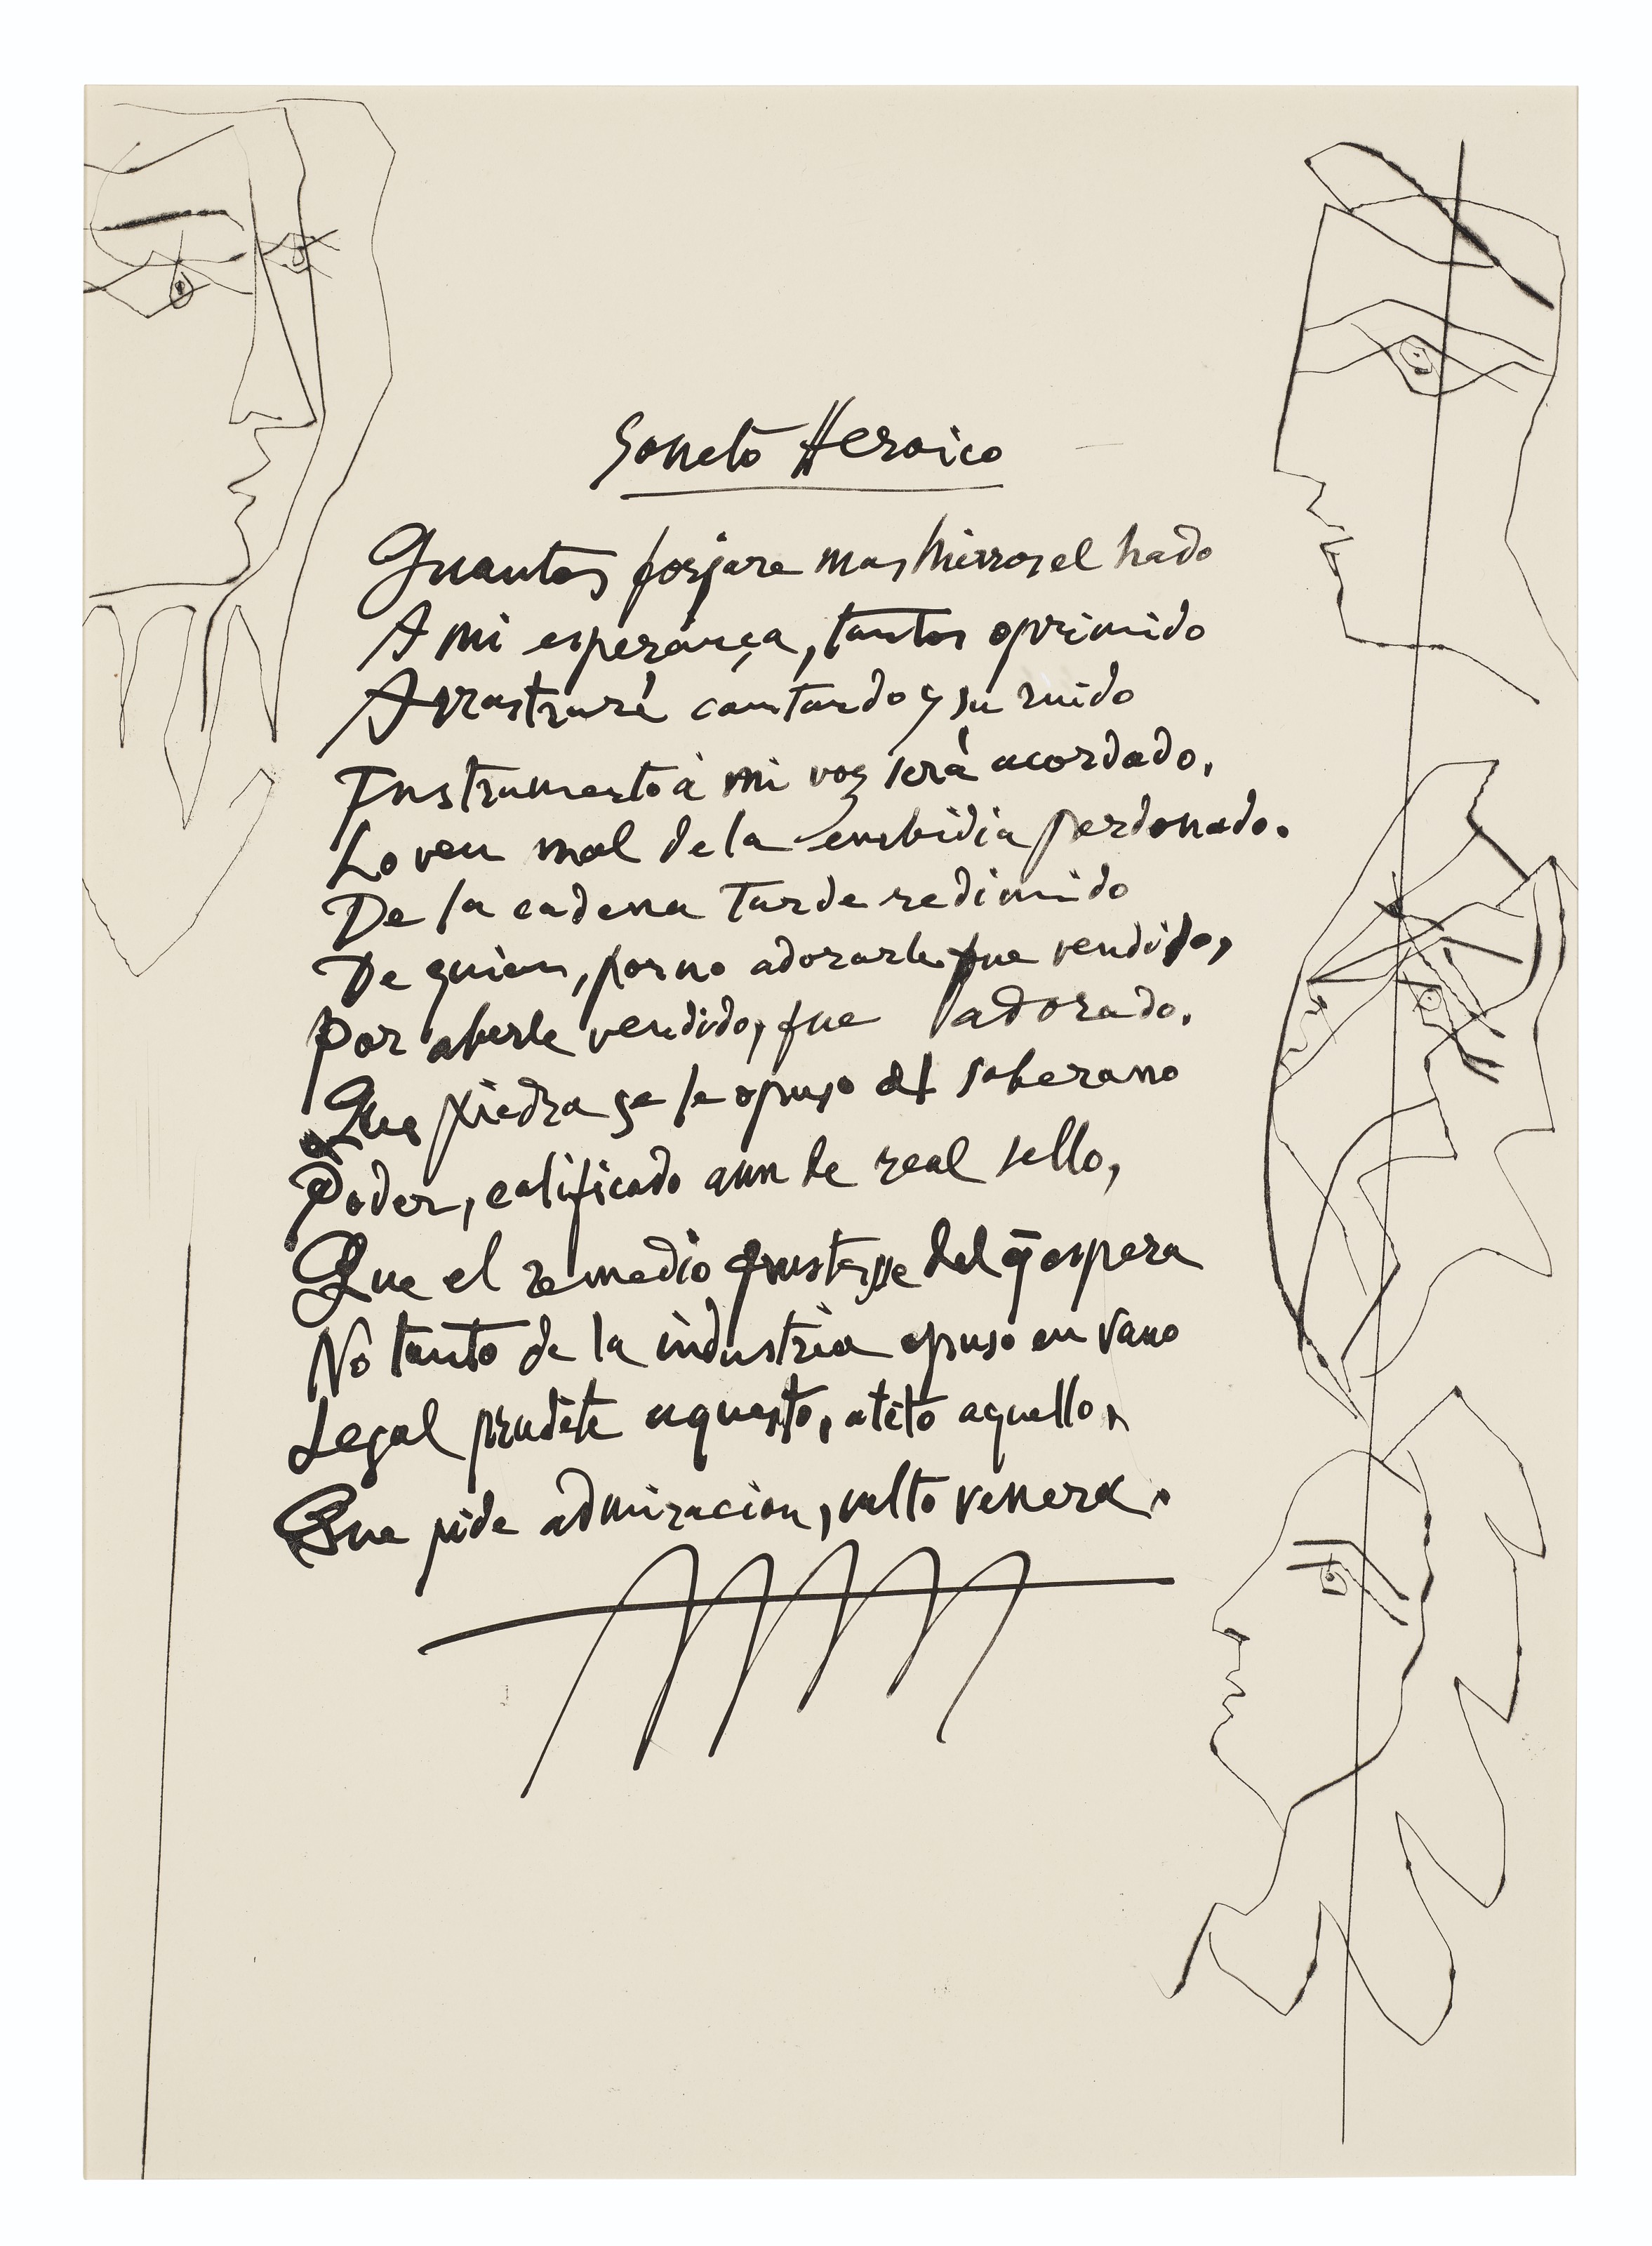 Soneto Heroico
Quantos forjare mas hierros el hado
A mi esperança, tantos oprimido
Arrastraré cantando y su ruido
Instrumento à mi voz serà acordado.
Joven mal de la embidia perdonado.
De la cadena Tarde redimido
De quien, por no adorarle fue vendido,
Por aberle vendido, fue adorado.
Que piedra se le opuso al soberano
Poder, calificado aun de real sello,
Que el remedio frustasse del q̄ espera
No tanto de la industria opuso en vano
Legal prudẽte aquesto, atẽto aquello,
Que pide admiracion, culto venera.